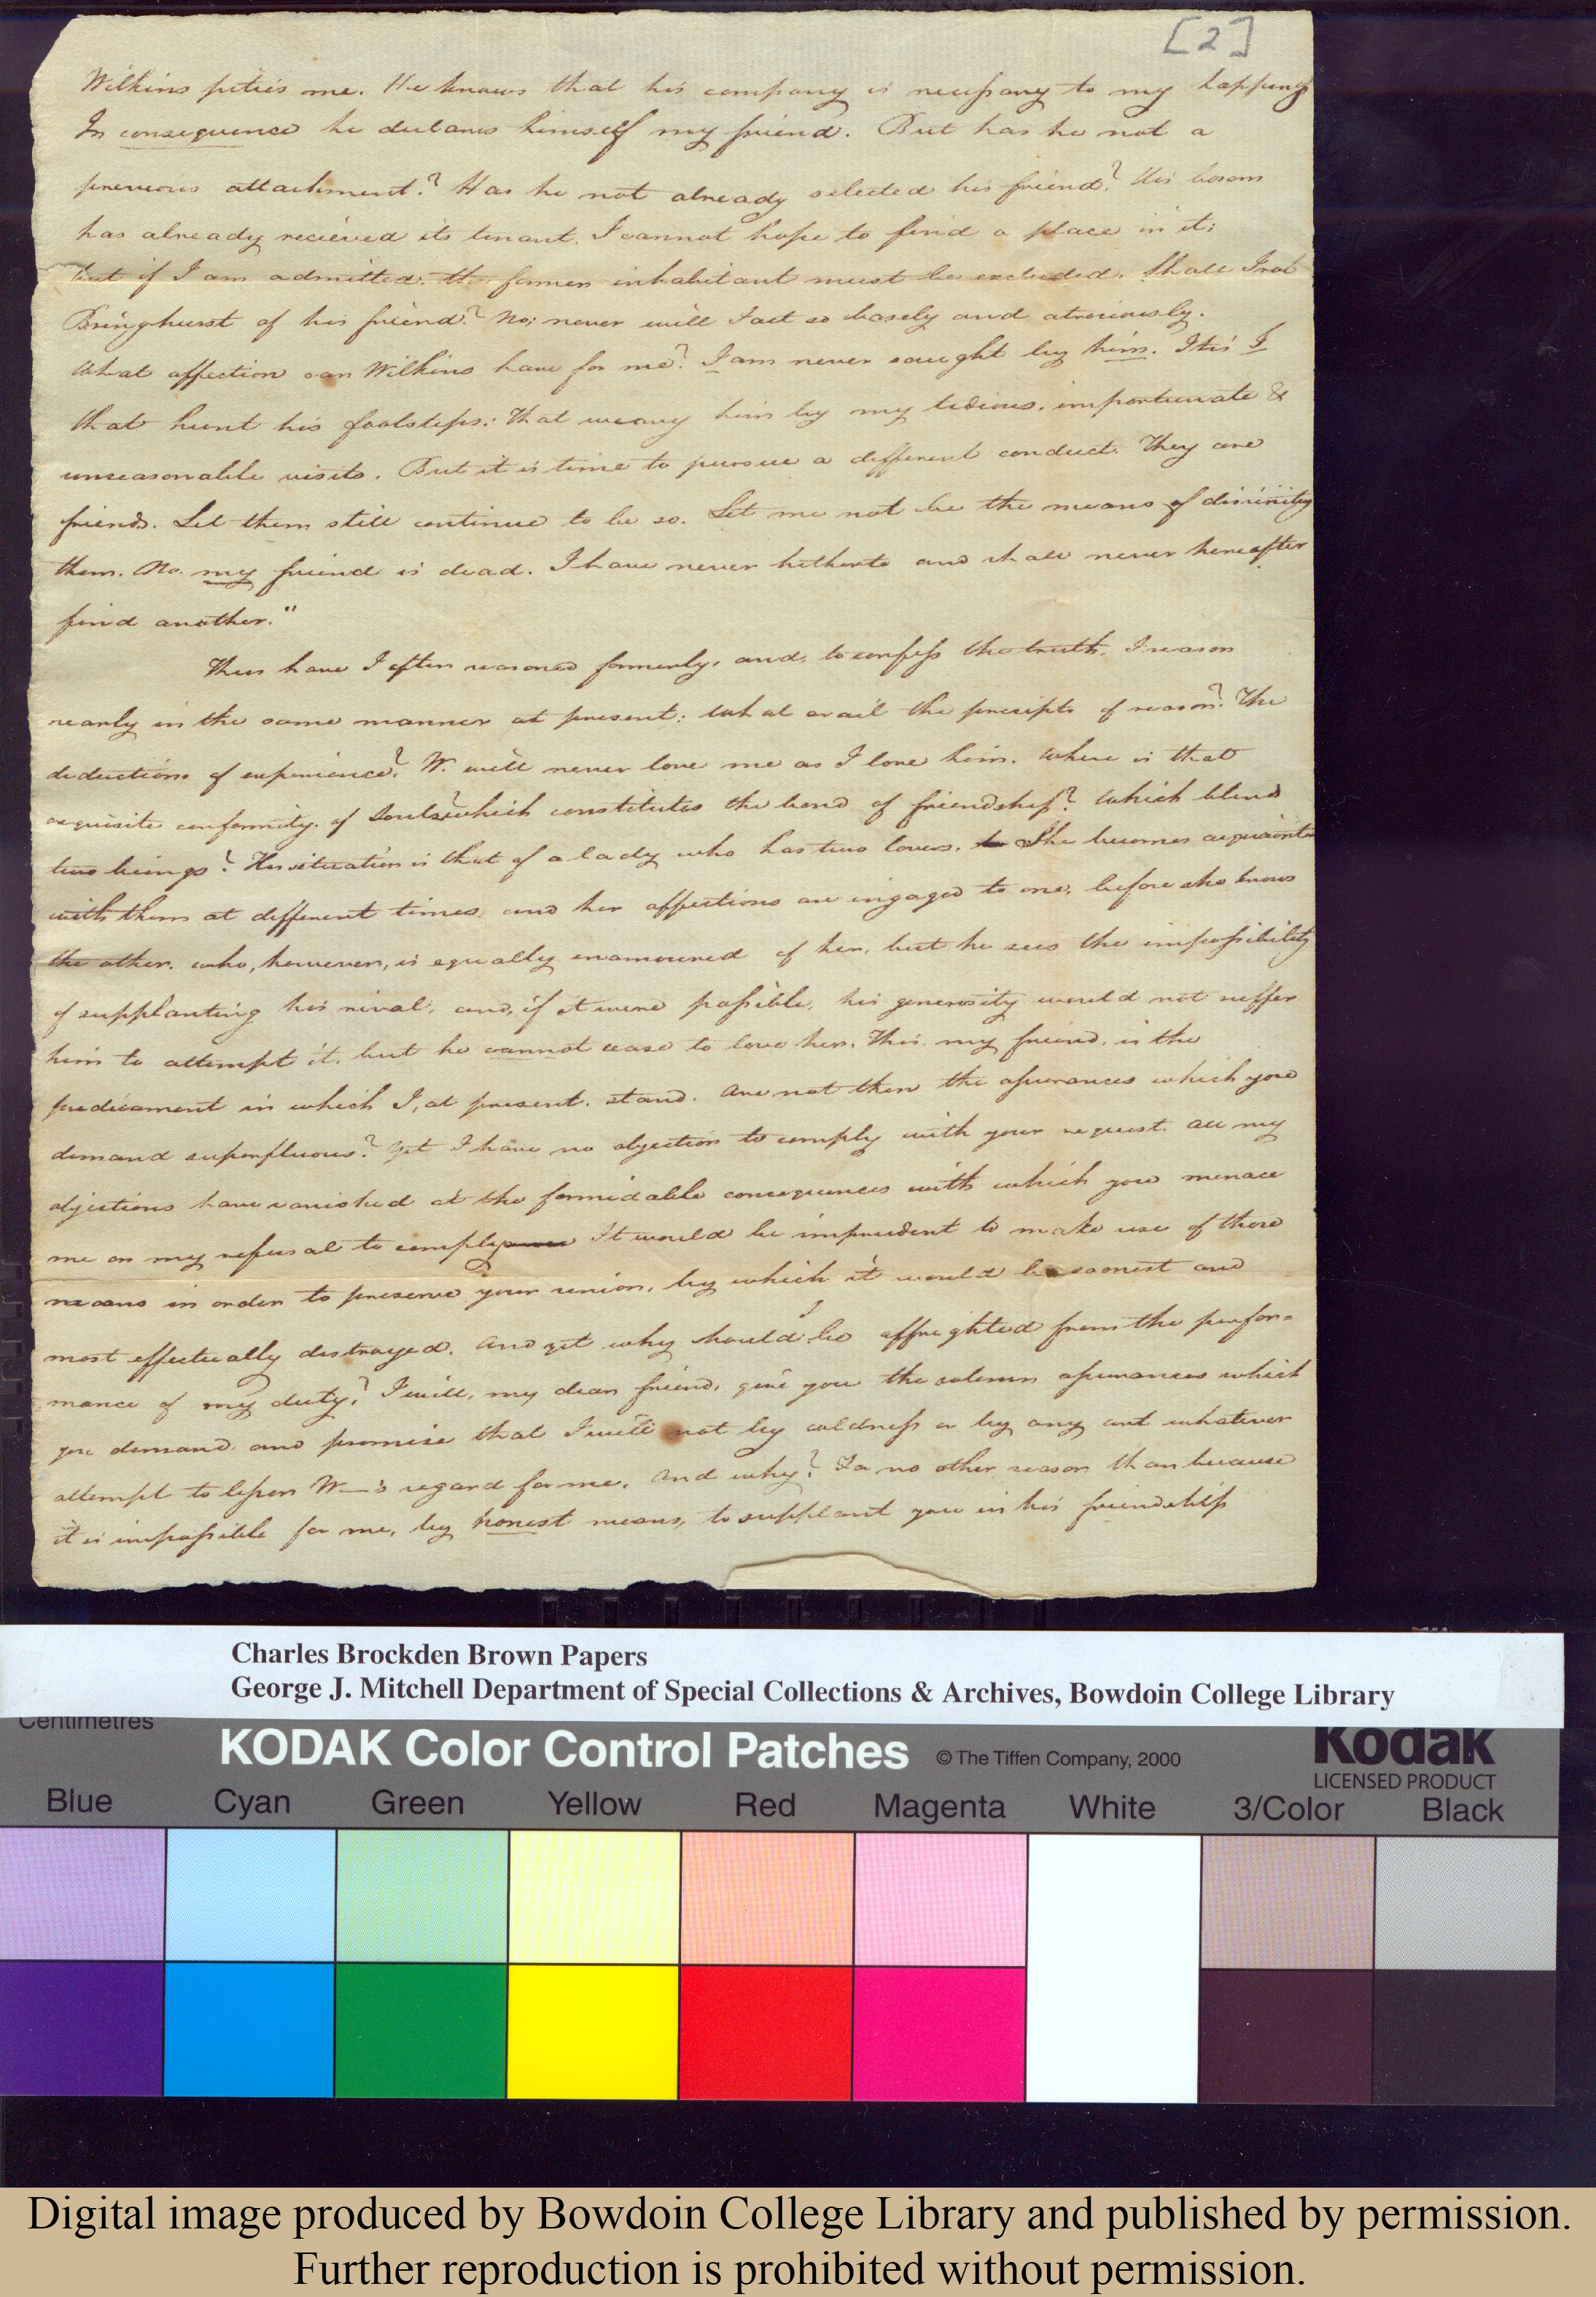 [2]
Wilkins pities me. He knows that his company is necessary to my happiness
In consequence he declares himself my friend. But has he not a
previous attachment? Has he not already selected his friend? His bosom
has already recieved its tenant. I cannot hope to find a place in it;
but if I am admitted, the former inhabitant must be excluded. Shall I rob
Bringhurst of his friend? No; never will I act so basely and atrociously.
What affection can Wilkins have for me? I am never sought by him. It is I
that hunt his footsteps: that weary him by my tedious, importunate &
unreasonable visits. But it is time to pursue a different conduct. They are
friends. Let them still continue to be so. Let me not be the means of disuniting
them. No. my friend is dead. I have never hitherto and shall never hereafter
find another."
Thus have I often reasoned formerly, and, to confess the truth, I reason
nearly in the same manner at present: What avail the precepts of reason? The
deductions of experience? W. will never love me as I love him. Where is that
exquisite conformity of Souls? which constitutes the bond of friendship? Which blends
two beings? His situation is that of a lady who has two lovers. She becomes acquainted
with them at different times, and her affections are engaged to one, before she knows
the other. who, however, is equally enamoured of her, but he sees the impossibility
of supplanting his rival, and, if it were possible, his generosity would not suffer
him to attempt it. but he cannot cease to love her. This, my friend, is the
predicament in which I, at present, stand. Are not then the assurances which you
demand superfluous? Yet I have no objection to comply with your request. All my
objections have vanished at the formidable consequences with which you menace
me on my refusal to comply It would be imprudent to make use of those
means in order to preserve your union, by which it would be soonest and
most effectually destroyed. And yet why should I be affrighted from the perfor=
mance of my duty? I will, my dear friend, give you the solemn assurances which
you demand and promise that I will not by coldness or by any art whatever
attempt to lessen W—'s regard for me. And why? For no other reason than because
it is impossible for me, by honest means, to supplant you in his friendship
Charles Brockden Brown Papers
George J. Mitchell Department of Special Collections & Archives, Bowdoin College Library
Centimetres
KODAK Color Control Patches © The Tiffen Company, 2000 Kodak
LICENSED PRODUCT
Blue Cyan Green Yellow Red Magenta White 3/Color Black
Digital image produced by Bowdoin College Library and published by permission.
Further reproduction is prohibited without permission.